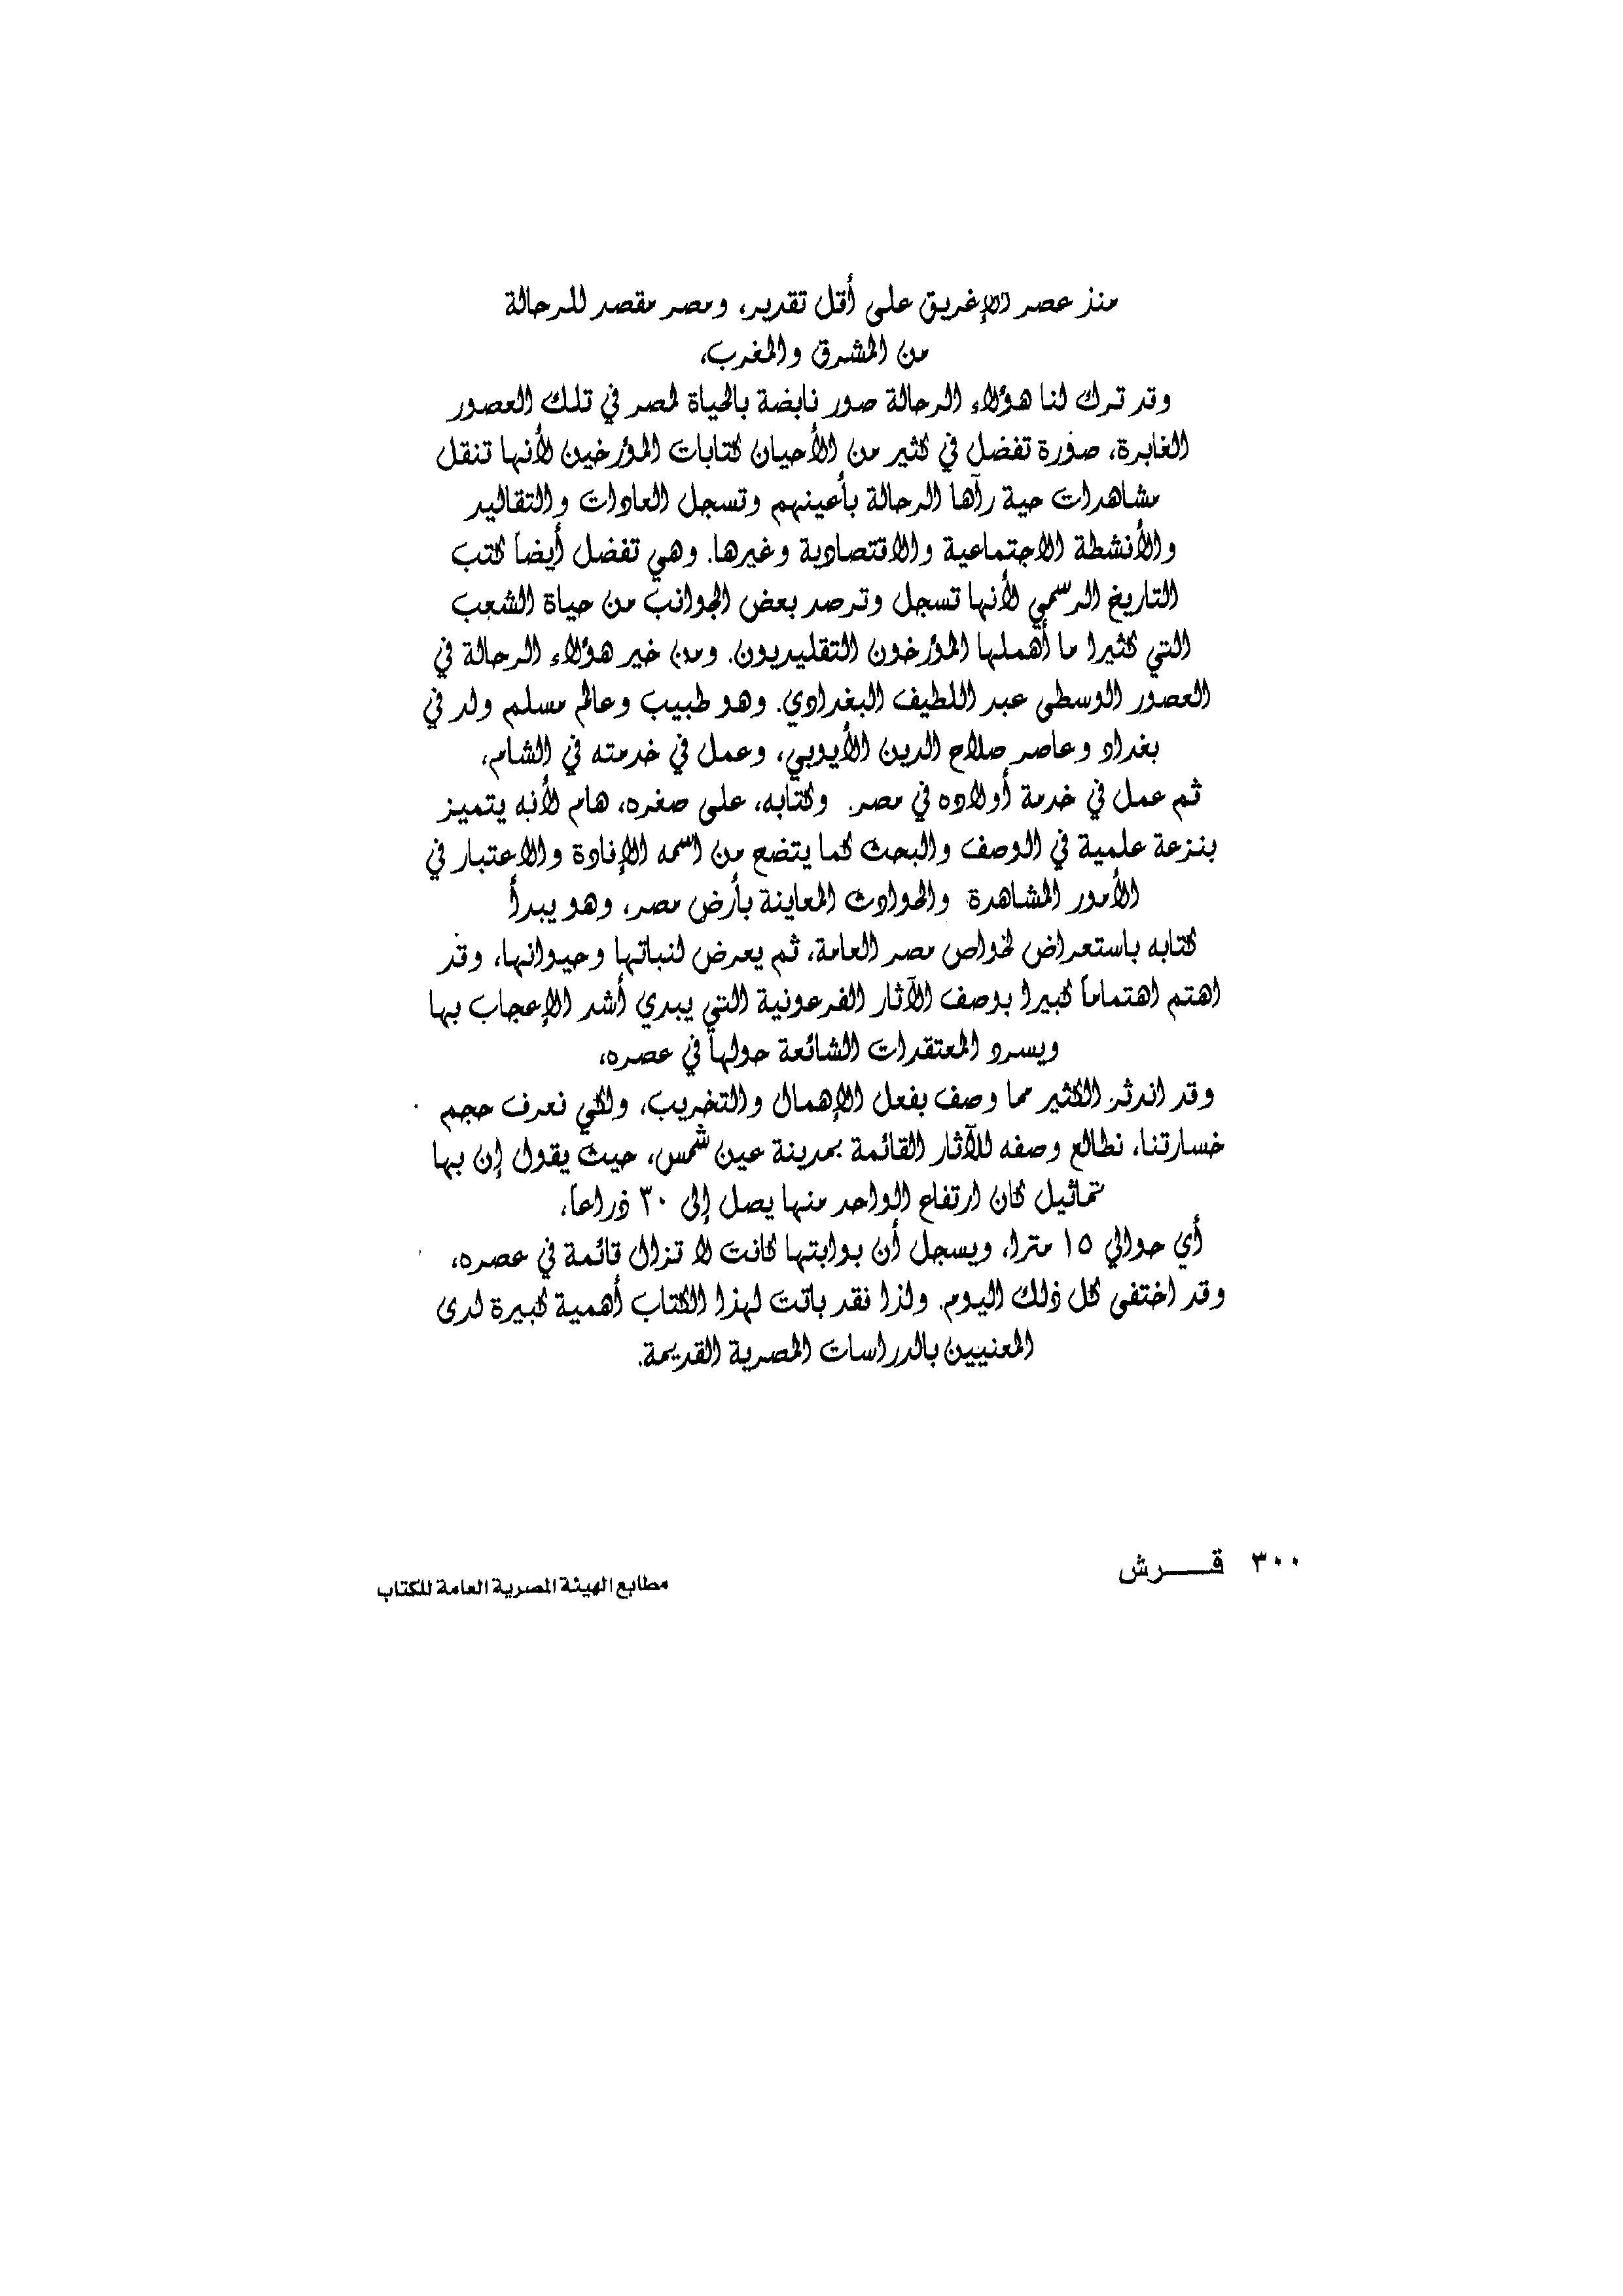 منذ عصر الإغريق على أقل تقدير، ومصر مقصد للرحالة
من المشرق والمغرب،
وقد ترك لنا هؤلاء الرحالة صور نابضة بالحياة لمصر في تلك العصور
الغابرة، صورة تفضل في كثير من الأحيان كتابات المؤرخين لأنها تنقل
مشاهدات حية رآها الرحالة بأعينهم وتسجل العادات والتقاليد
والأنشطة الاجتماعية والاقتصادية وغيرها. وهي تفضل أيضاً كتب
التاريخ الرسمي لأنها تسجل وترصد بعض الجوانب من حياة الشعب
التي كثيرا ما أهملها المؤرخون التقليديون. ومن خير هؤلاء الرحالة في
العصور الوسطى عبد اللطيف البغدادي. وهو طبيب وعالم مسلم ولد في
بغداد وعاصر صلاح الدين الأيوبي، وعمل في خدمته في الشام،
ثم عمل في خدمة أولاده في مصر. وكتابه، على صغره، هام لأنه يتميز
بنزعة علمية في الوصف والبحث كما يتضح من اسمه الإفادة والاعتبار في
الأمور المشاهدة والحوادث المعاينة بأرض مصر، وهو يبدأ
كتابه باستعراض لخواص مصر العامة، ثم يعرض لنباتها وحيوانها، وقد
اهتم اهتماماً كبيرا بوصف الآثار الفرعونية التي يبدي أشد الإعجاب بها
ويسرد المعتقدات الشائعة حولها في عصره،
وقد اندثر الكثير مما وصف بفعل الإهمال والتخريب، ولكي نعرف حجم
خسارتنا، نطالع وصفه للآثار القائمة بمدينة عين شمس، حيث يقول إن بها
تماثيل كان ارتفاع الواحد منها يصل إلى ٣٠ ذراعاً،
أي حوالي ١٥ مترا، ويسجل أن بوابتها كانت لا تزال قائمة في عصره،
وقد اختفى كل ذلك اليوم. ولذا نقد باتت لهذا الكتاب أهمية كبيرة لدى
المعنيين بالدراسات المصرية القديمة.
٣٠٠ قـــرش
مطابع الهيئة المصرية العامة للكتاب